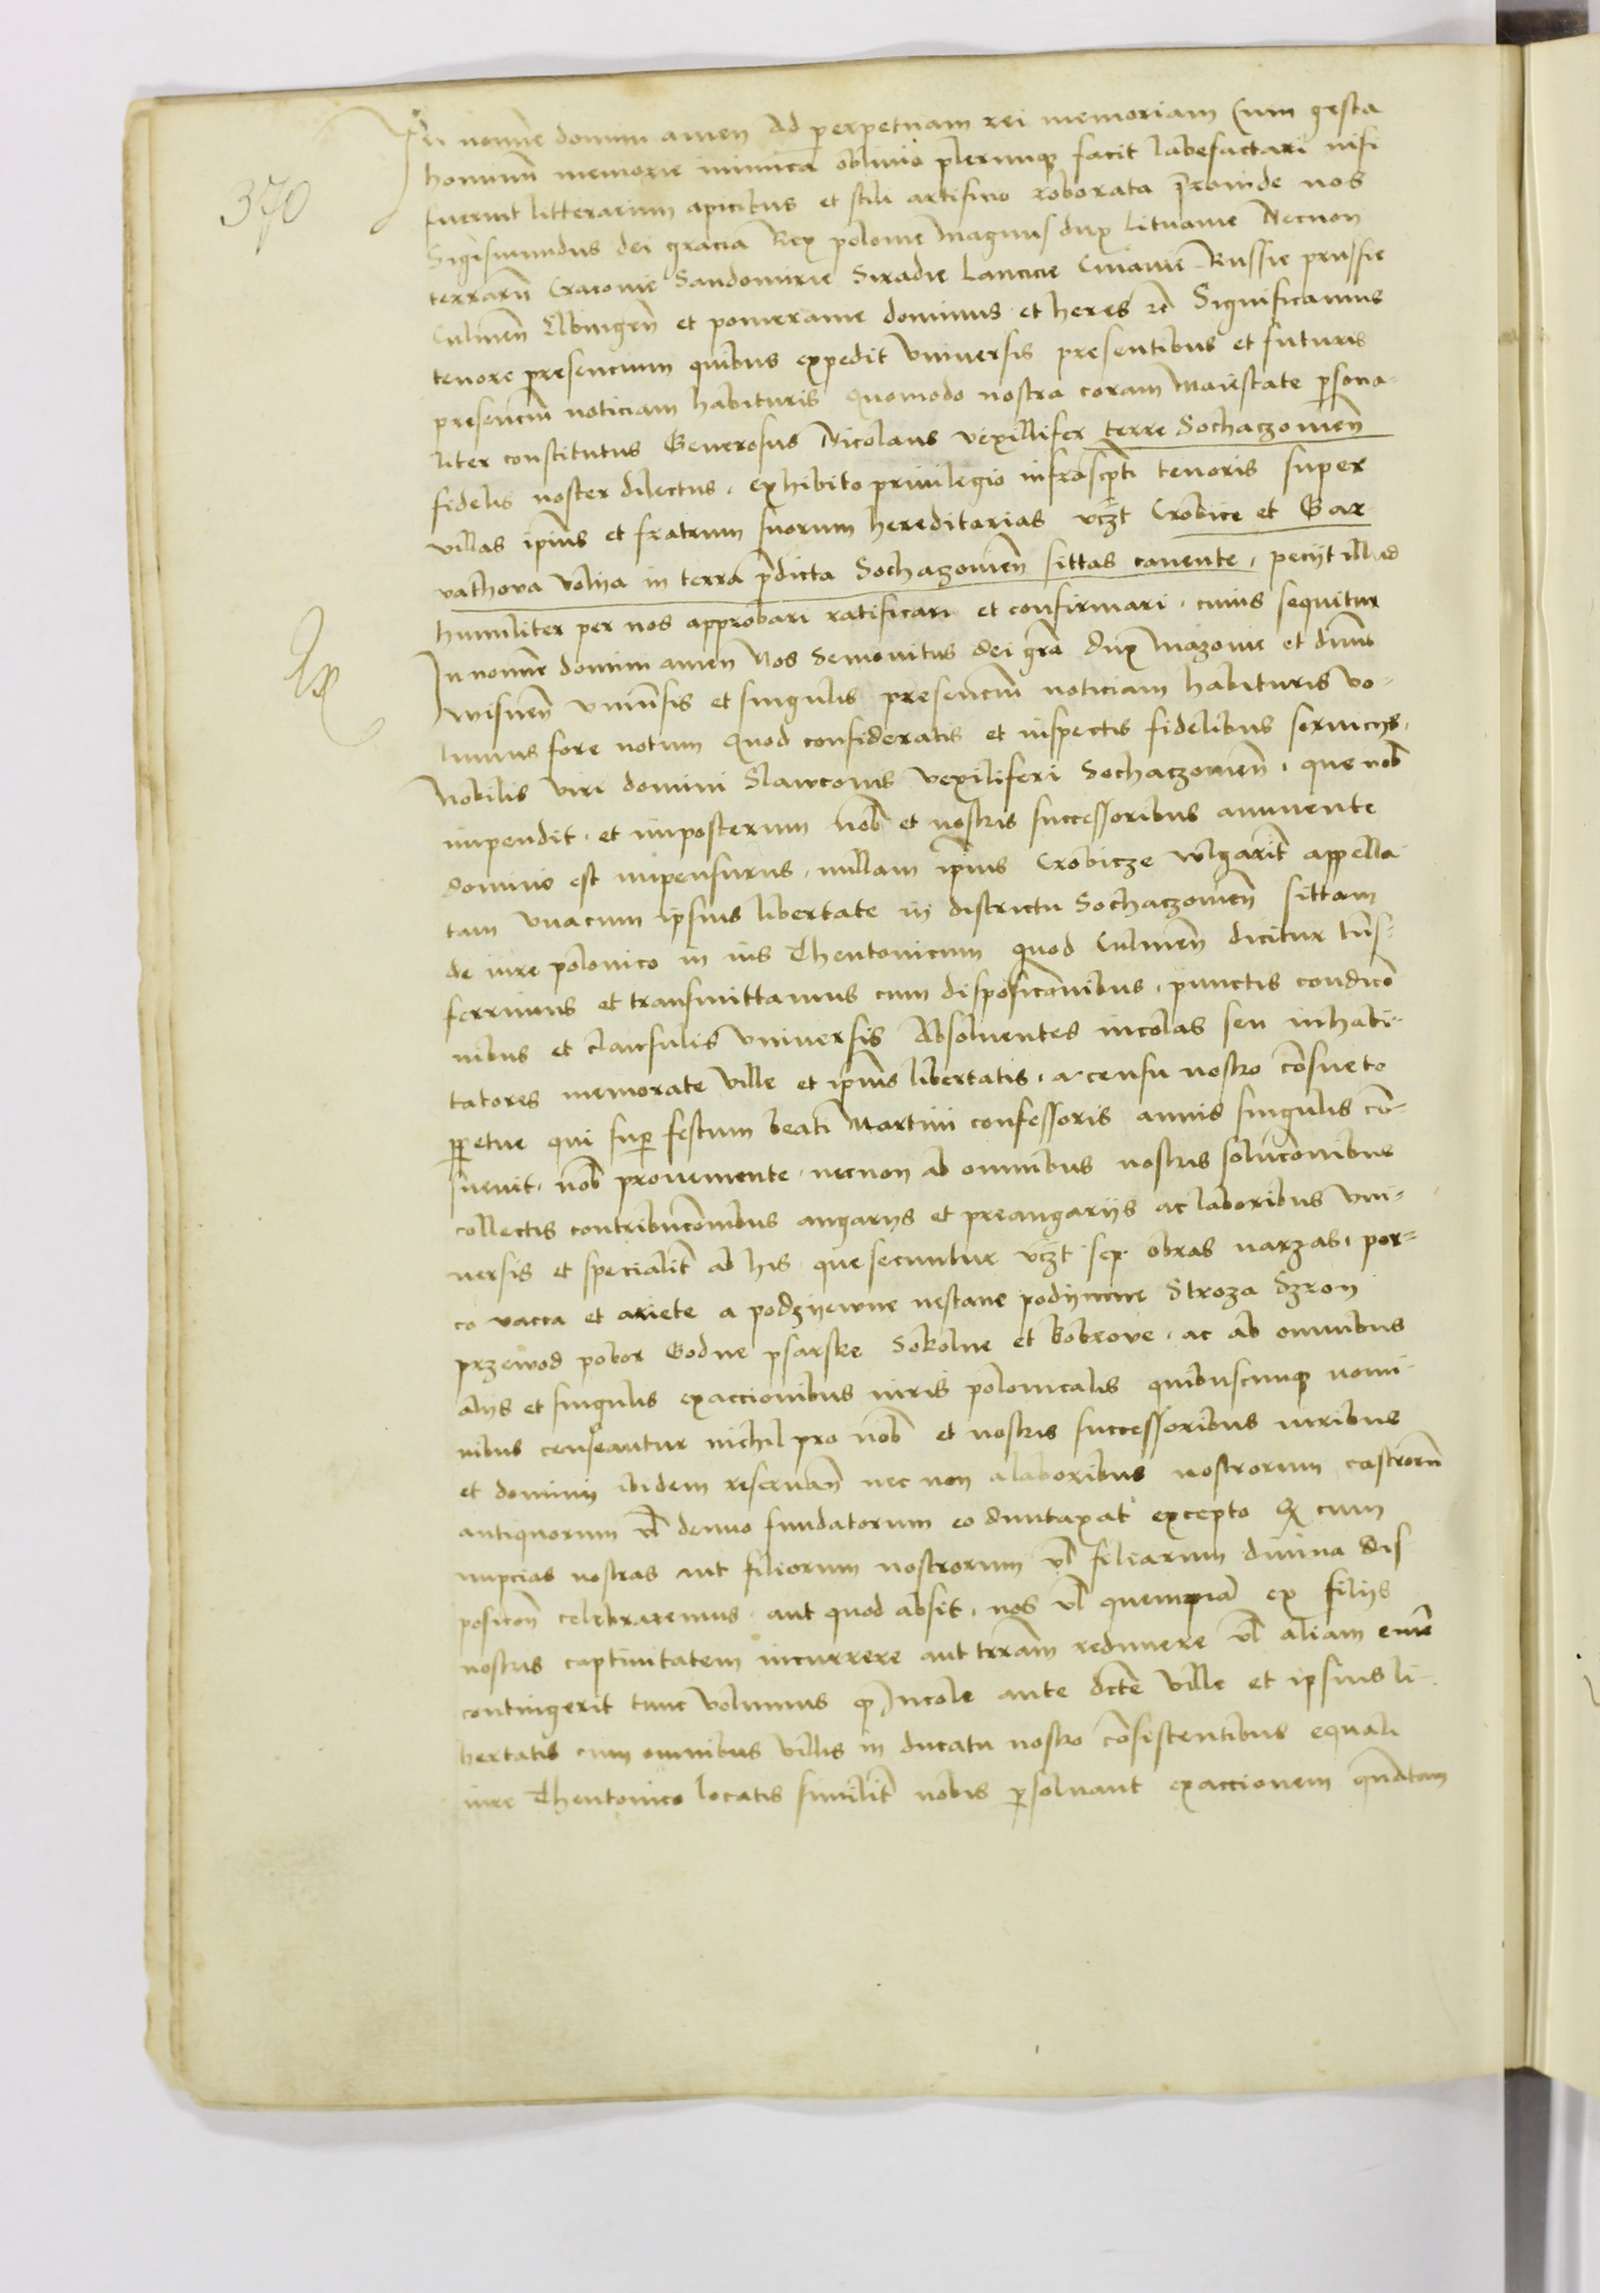 In nomine domini amen Ad perpetuam rei memoriam Cum gesta
hominum memorie inimica oblivio plerumque facit labefactari nisi
370
fuerint litterarum apicibus et stili artificio roborata Proinde nos
Sigismundus dei gracia Rex polonie Magnus dux lituanie Necnon
terrarum Cracovie Sandomirie Siradie Lancicie Cuiavie Russie prussie
Culmen Elbingen et pomeranie dominus et heres etc Significamus
tenore presencium quibus expedit Universis presentibus et futuris
presencium noticiam habituris Quomodo nostra coram Maiestate persona-
liter constitutus Generosus Nicolaus vexillifer terre Sochaczovien
fidelis noster dilectus, exhibito privilegio infrascripti tenoris super
villas ipsius et fratrum suorum hereditarias vczt Crobice et Gar
vathova volya in terra predicta Sochaczovien sittas cavente, peciit illud
humiliter per nos approbari ratificari et confirmari, cuius sequitur
In nomine domini amen Nos Semovitus dei gracia dux Mazovie et dominus
Wisnen universis et singulis presencium noticiam habituris vo-
lumus fore notum Quod consideratis et inspectis fidelibus serviciis,
Nobilis viri domini Slawconis vexiliferi Sochaczovien, que nob
impendit, et imposterum nob et nostris successoribus annuente
domino est impensurus, villam ipsius Crobicze vulgarit appella
tam unacum ipsius libertate in districtu Sochaczovien sittam
de iure polonico in ius Theutonicum quod Culmen dicitur trans-
ferrimus et transmittamus cum disposicionibus, punctis condicio
nibus et clausulis Universis Absolventes incolas seu inhabi-
tatores memorate ville et ipsius libertatis, a censu nostro consueto
perpetue qui super festum beati Martini confessoris annis singulis con-
suevit, nob proveniente, necnon ab omnibus nostris solucionibus
collectis contribucionibus angariis et preangariis ac laboribus uni-
versis et specialit ab his que secuntur vczt sep obras narzas, por-
co vacca et ariete a podzyewne nestane podymne Stroza Dzron
przewod pobor Godne psarske Sokolne et bobrove, ac ab omnibus
aliis et singulis exaccionibus iuris polonicalis quibuscunque nomi-
nibus censeantur nichil pro nob et nostris successoribus iuribus
et dominii ibidem reservan nec non a laboribus nostrorum castrorum
antiquorum vel denuo fundatorum eo duntaxat excepto quod cum
nupcias nostras aut filiorum nostrorum vel filiarum divina dis
posicion celebraremus aut quod absit, nos vel quempiam ex filiis
nostris captivitatem incurrere aut terram redimere vel aliam emere
contingerit tunc volumus quod Incole ante dicte ville et ipsius li-
bertatis cum omnibus villis in ducatu nostro consistentibus equali
iure Theutonico locatis similit nobis persolvant exaccionem quantam